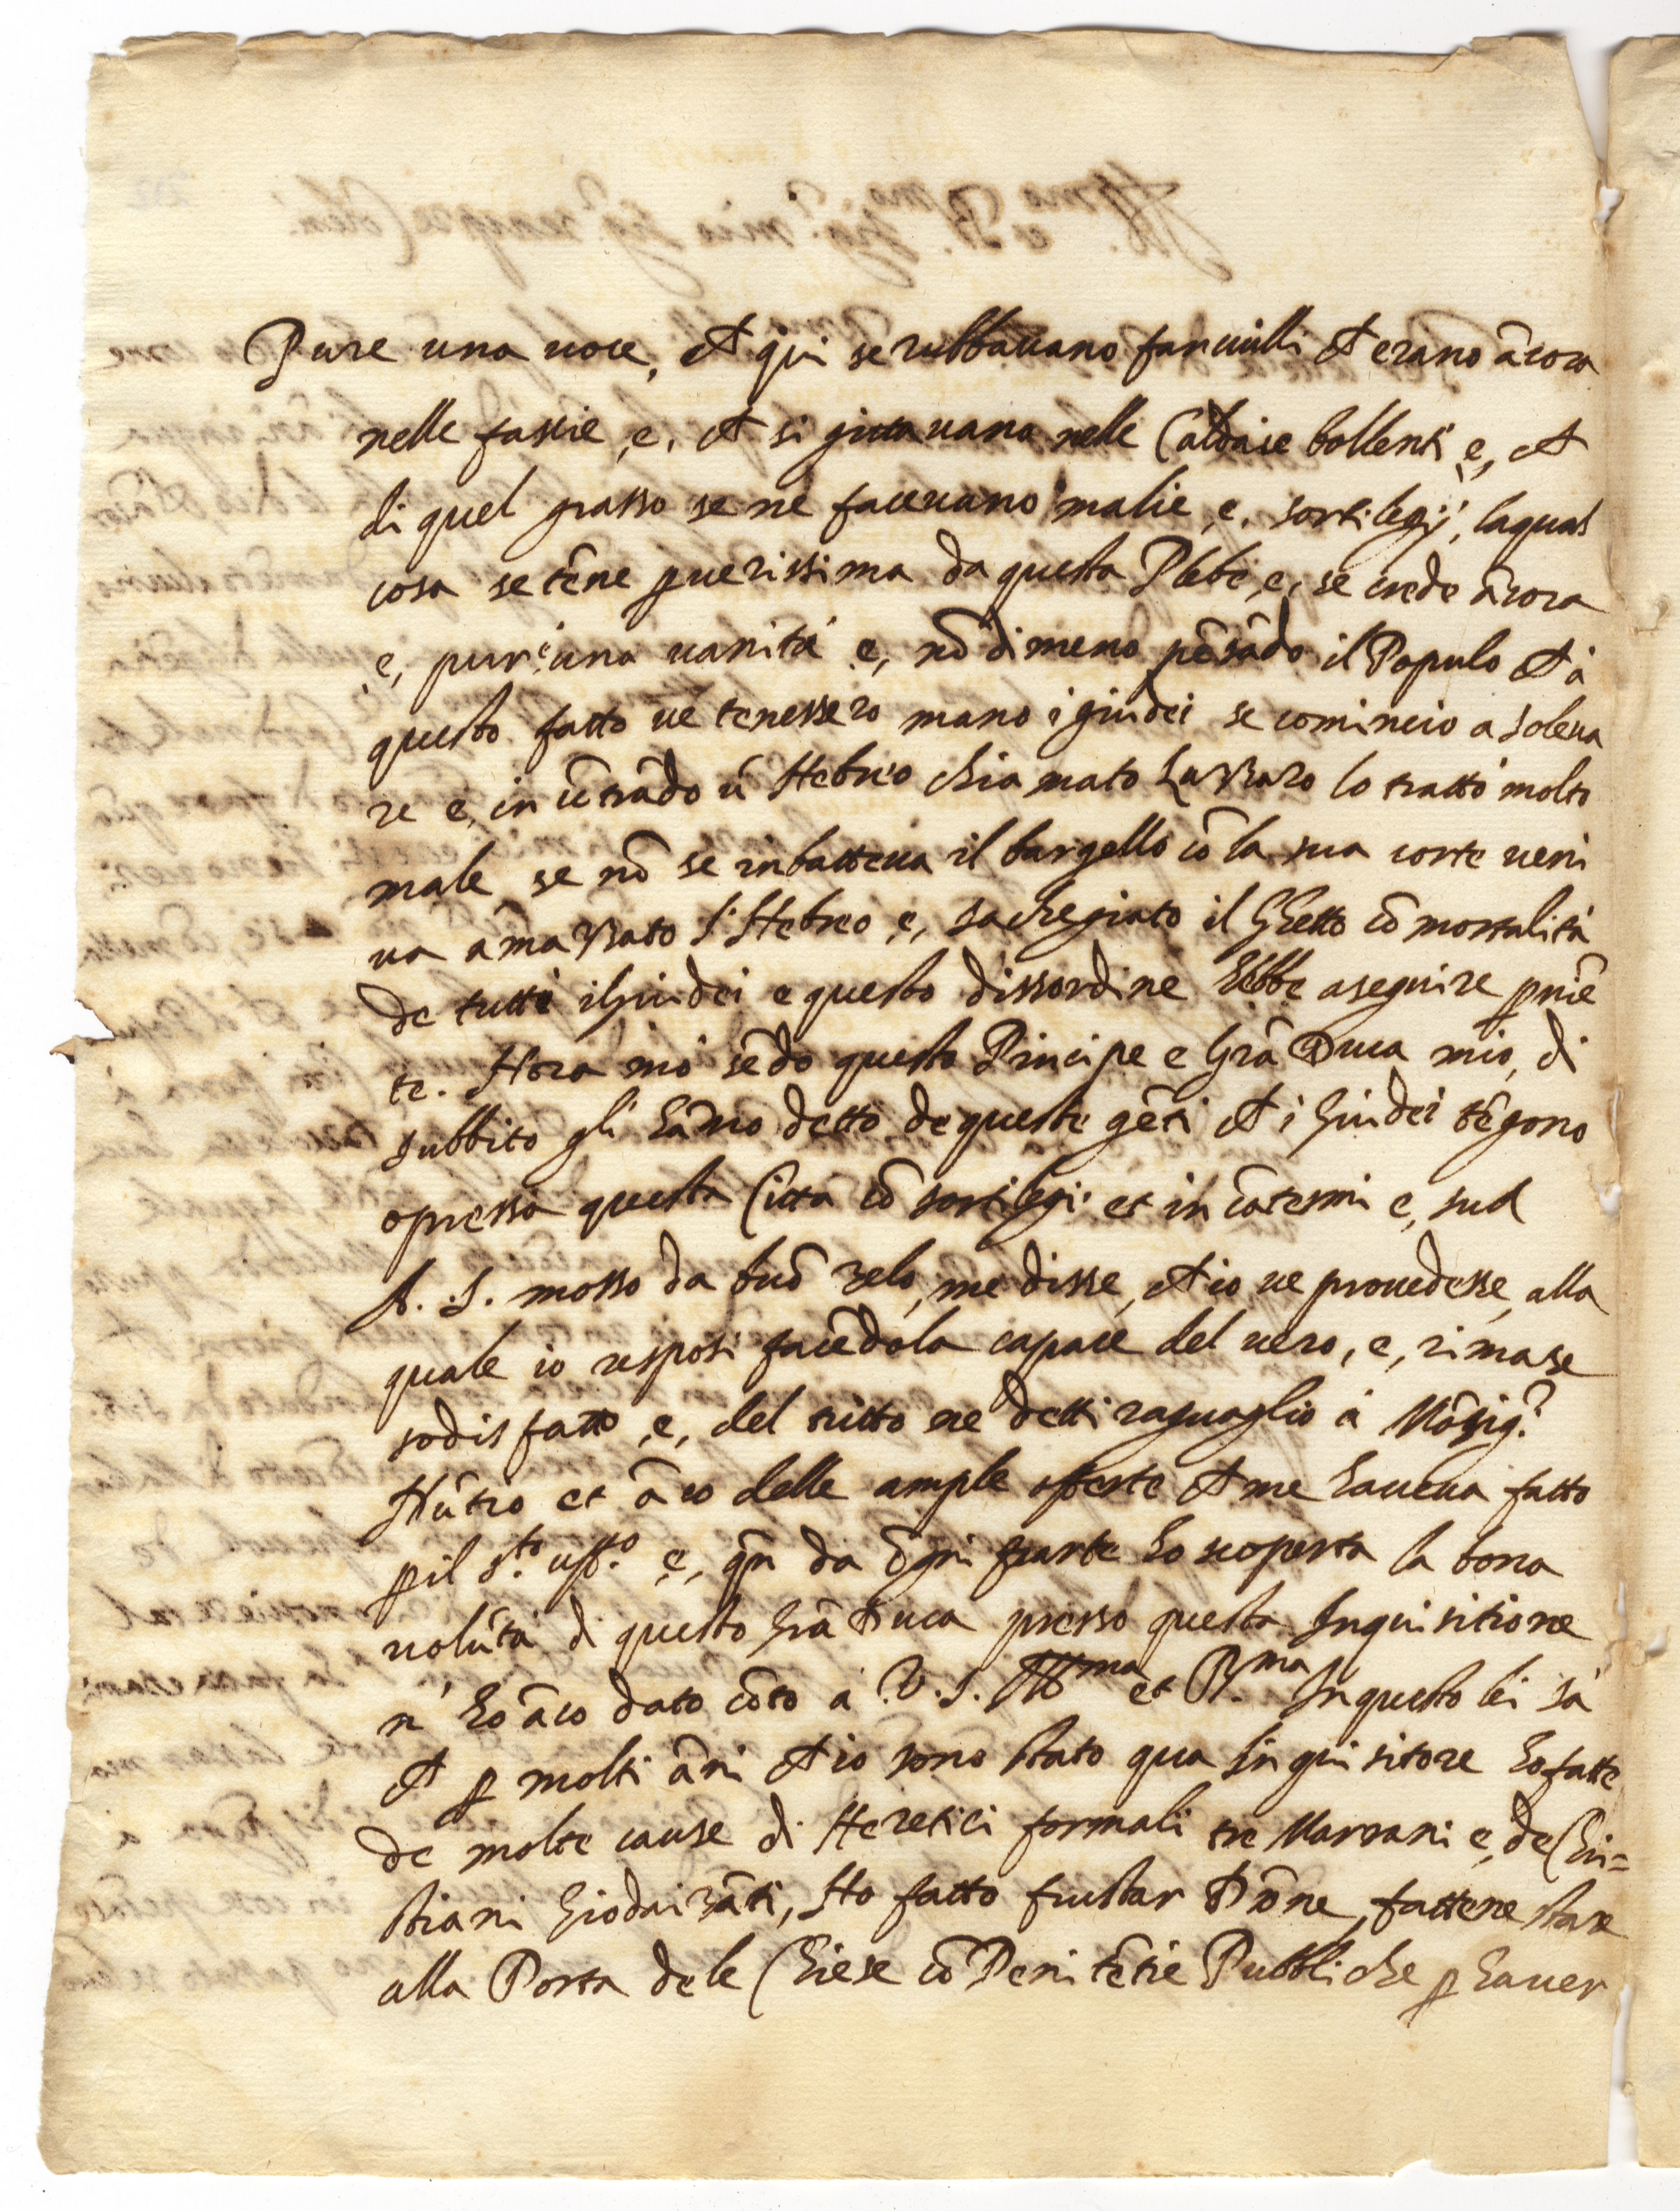 Pure una uoce, ch qui se rubbauano fanciulli ch erano ãcora
nelle fascie, e, ch si gittauano nelle Caldaie bollenti e, ch
di quel grasso se ne faceuano malie, e, sortilegij, laqual
cosa se tẽne p uerissima da questa Plebe, e, se crede ãcora
e, pur'è una uanità e, nõ dimeno pẽsãdo il Populo ch à
questo fatto ue tenessero mano i giudei se cominciò a solleua
re e, in cõtrãdo ũ Hebreo chiamato Lazzaro lo trattò molto
male, se nõ se inbatteua il bargello cõ la sua corte ueni
ua ãmazzato l'Hebreo, e, sachegiato il Ghetto cõ mortalità
de tutti i Giudei e questo dissordine hebbe aseguire p niẽ
te. Hora mò sẽdo questo Principe e Grã Duca mio, di
subbito gli hãno detto de queste gẽti ch i Giudei tẽgono
opressa questa Città cõ sortilegi et in cãtesmi e, sud
A. S. mosso da buõ zelo, me disse, ch io ue prouedesse, alla
quale io resposi facẽdola capace del uero, e, rimase
sodisfatto, e, del tutto ne detti raguaglio à Mõsig.r
Nũtio et ãco delle ample offerte ch me haueua fatto
p il s.to uff.o e, qñ da õgni parte ho scoperta la bona
uolũtà di questo Grã Duca presso questa Inquisitione
n' ho ãco dato cõto à V. S. Ill.ma et R.ma In questo lei sà
ch p molti ãni ch io sono stato qua Inquisitore ho fatte
de molte cause di Heretici formali tre Marrani e, de Chri=
stiani Giodaizãti, Ho fatto frustar Dõne, fattene stare
alla Porta dele Chiese cõ Penitẽtie Pubbliche p hauer